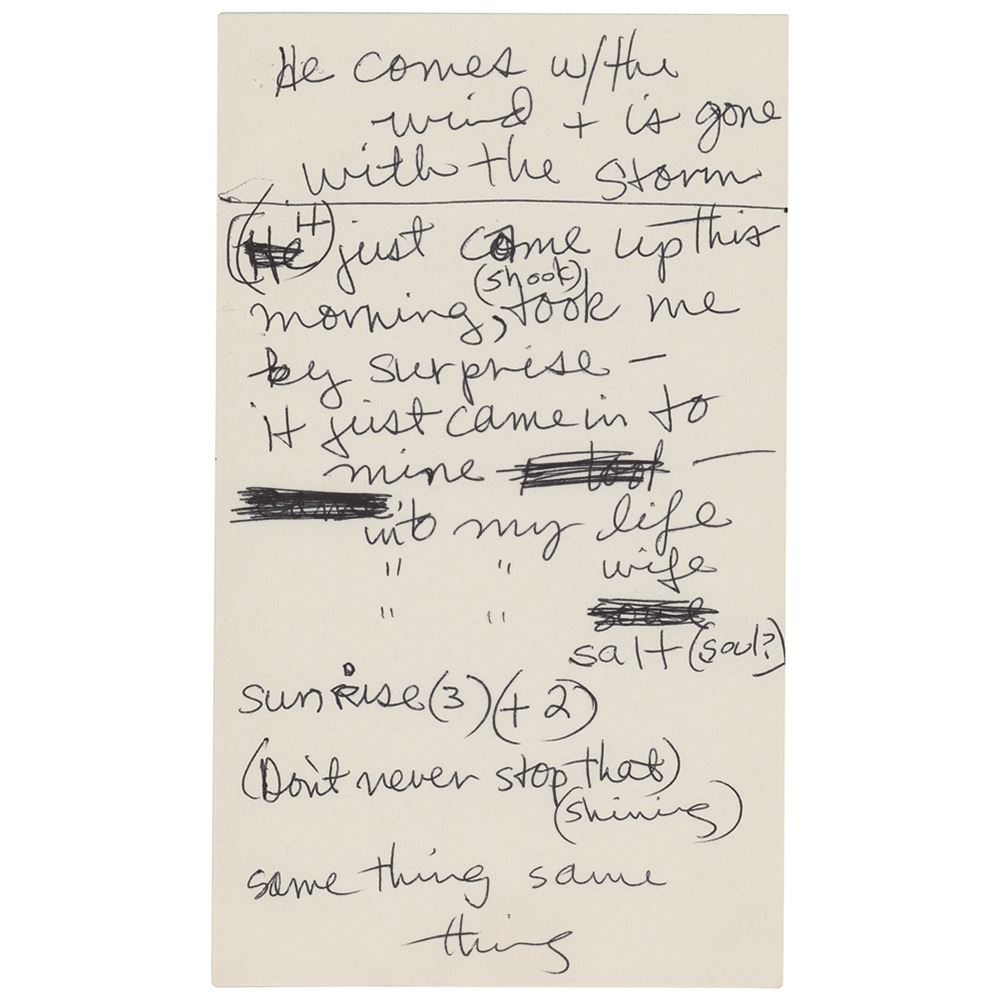 He comes w/the
wind + is gone
with the storm
(It) just come up this
(shook)
morning, took me
by surprise –
it just came in to
mine —
into my life
" " wife
" "
salt (soul?)
sunrise (3) (+ 2)
(Don't never stop that)
(shining)
same thing same
thing